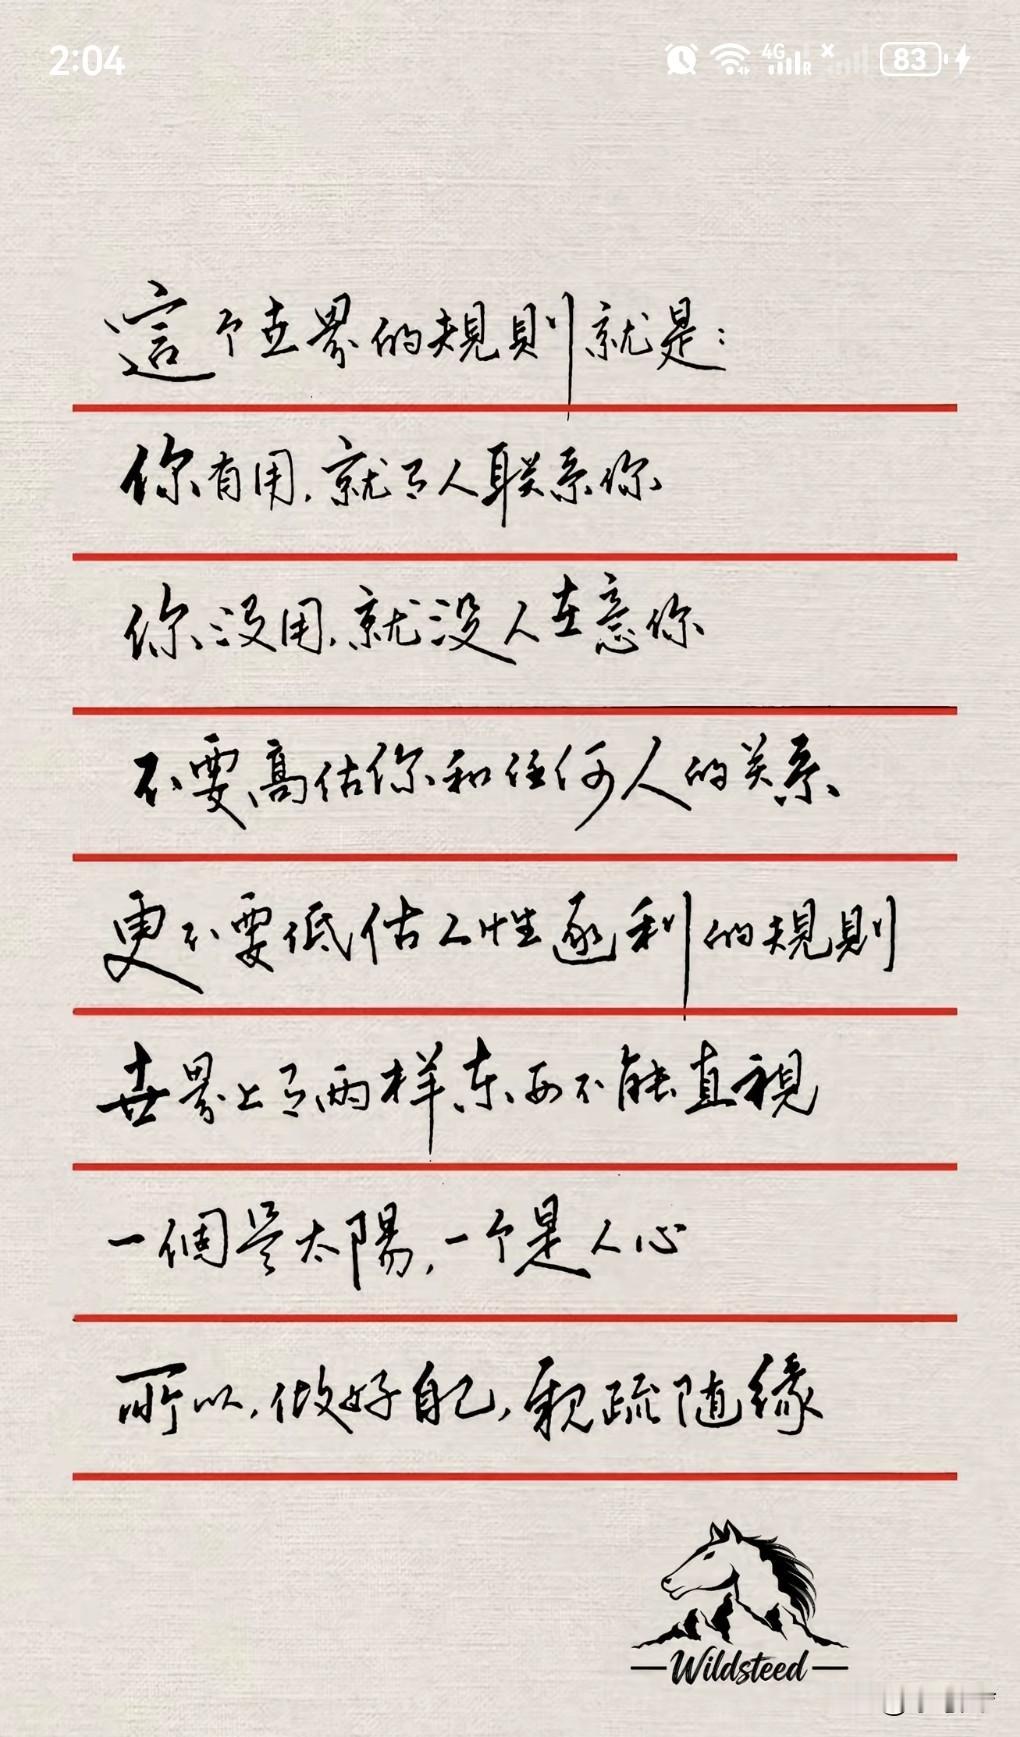 2:04 4G R 83
這个世界的規則就是：
你有用，就有人联系你
你没用，就没人在意你
不要高估你和任何人的关系
更不要低估人性逐利的規則
世界上有两样东西不能直視
一個是太陽，一个是人心
所以，做好自己，親疏随缘
Wildsteed